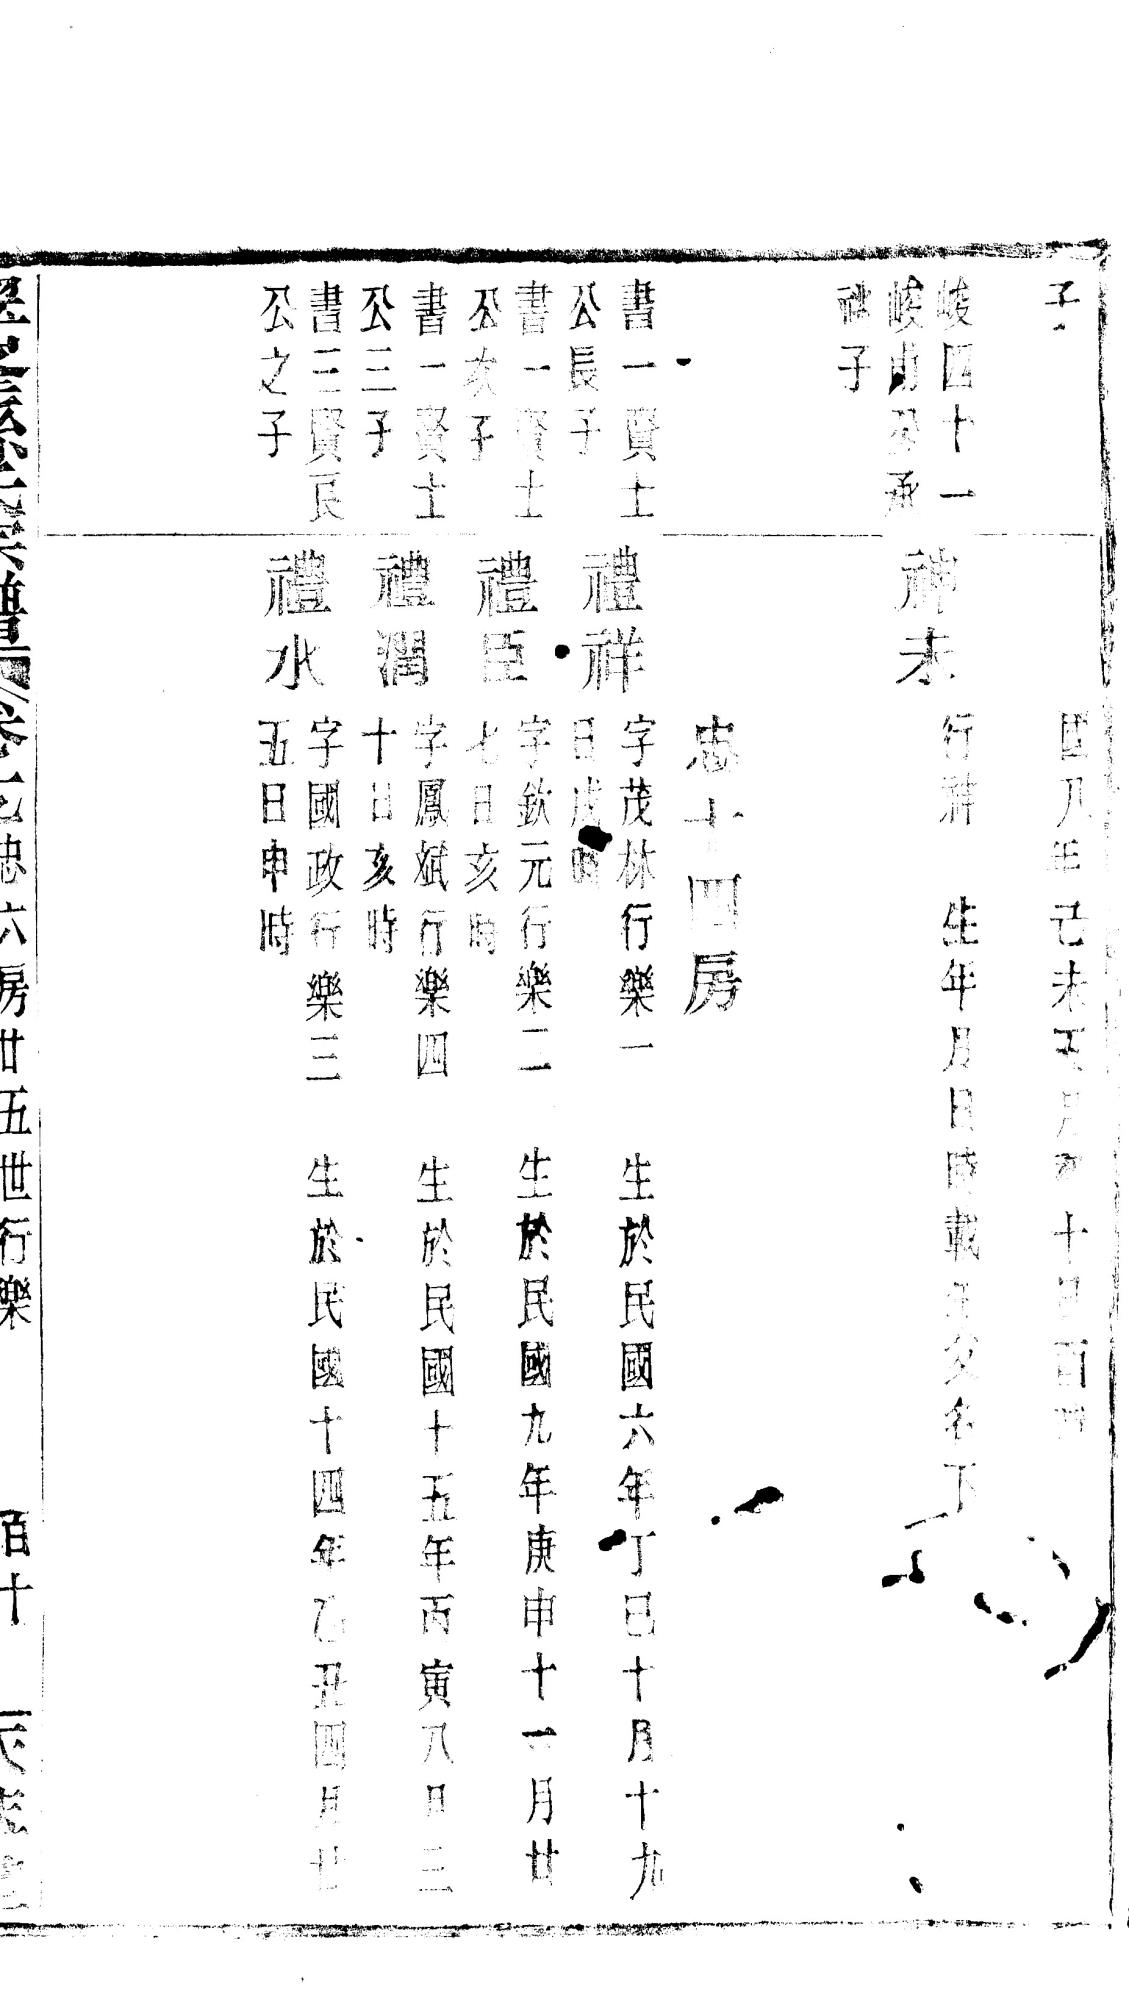 子
國八年己未五月初十日酉時
峻四十一
峻甫公承
祉子
神未
行神　生年月日時載生父名下
忠十四房
書一賢士
公長子
禮祥
字茂林行樂一　生於民國六年丁巳十月十九
日戌時
書一賢士
公次子
禮臣
字欽元行樂二　生於民國九年庚申十一月廿
七日亥時
書一賢士
公三子
禮潤
字鳳斌行樂四　生於民國十五年丙寅八月三
十日亥時
書三賢良
公之子
禮水
字國政行樂三　生於民國十四年乙丑四月廿
五日申時
宗譜　卷 忠六房廿五世行樂　百十